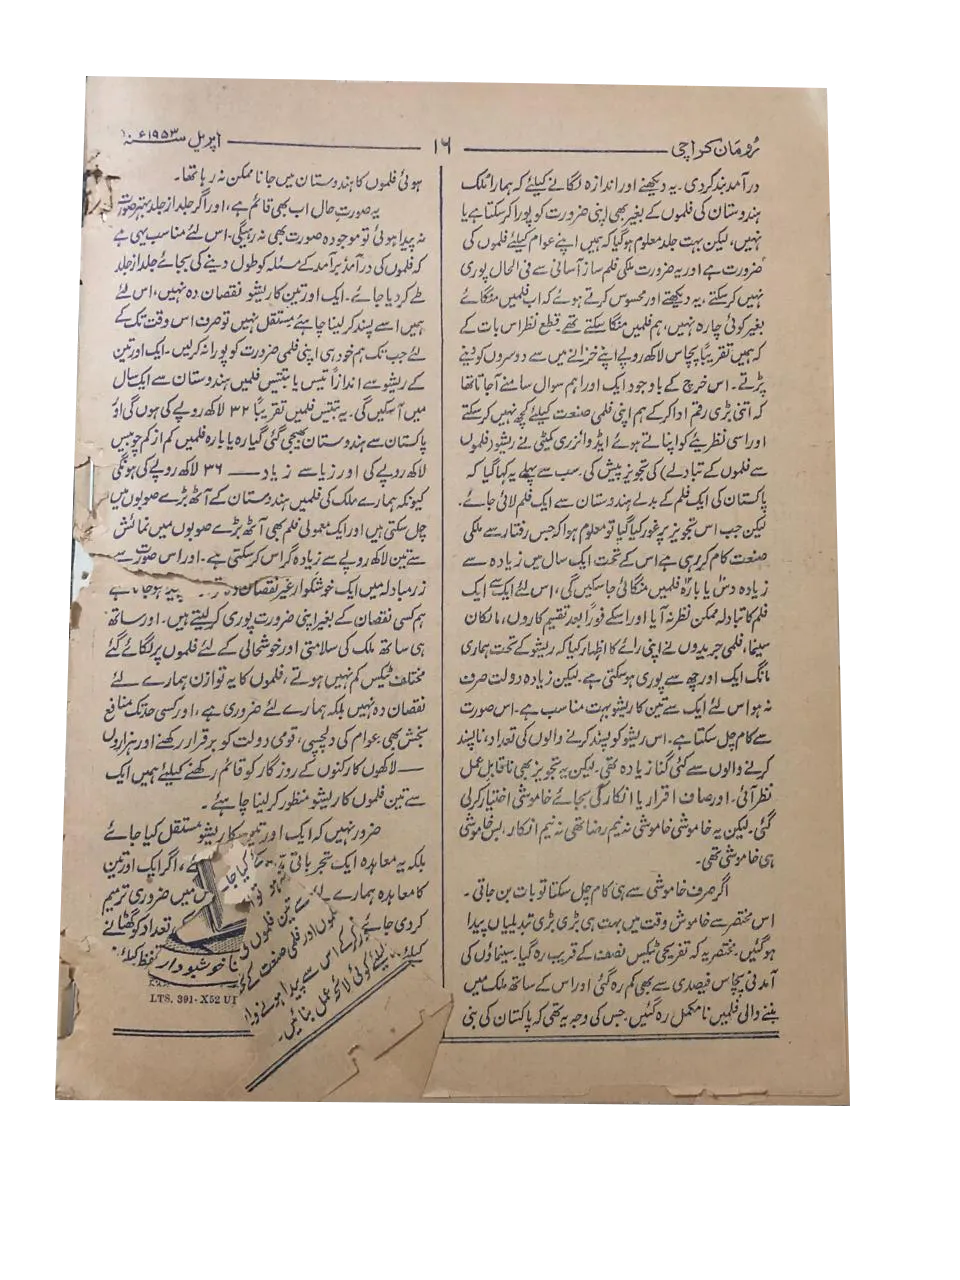 رُومان کراچی ۱۶ اپریل سنہ ۱۹۵۳ء
درآمد بند کردی۔ یہ دیکھنے اور اندازہ لگانے کیلئے کہ ہمارا ملک
ہندوستان کی فلموں کے بغیر بھی اپنی ضرورت کو پورا کر سکتا ہے یا
نہیں، لیکن بہت جلد معلوم ہو گیا کہ ہمیں اپنے عوام کیلئے فلموں کی
ضرورت ہے اور یہ ضرورت ملکی فلم ساز آسانی سے فی الحال پوری
نہیں کر سکتے، یہ دیکھتے اور محسوس کرتے ہوئے کہ اب فلمیں منگائے
بغیر کوئی چارہ نہیں، ہم فلمیں منگا سکتے تھے۔ قطع نظر اس بات کے
کہ ہمیں تقریباً پچاس لاکھ روپے اپنے خزانے میں سے دوسروں کو دینے
پڑتے۔ اس خرچ کے باوجود ایک اور اہم سوال سامنے آجاتا تھا
کہ اتنی بڑی رقم ادا کر کے ہم اپنی فلمی صنعت کیلئے کچھ نہیں کر سکتے
اور اسی نظریئے کو اپناتے ہوئے ایڈوائزری کمیٹی نے ریشو (فلموں
سے فلموں کے تبادلے) کی تجویز پیش کی۔ سب سے پہلے یہ کہا گیا کہ
پاکستان کی ایک فلم کے بدلے ہندوستان سے ایک فلم لائی جائے۔
لیکن جب اس تجویز پر غور کیا گیا تو معلوم ہوا کہ جس رفتار سے ملکی
صنعت کام کر رہی ہے اس کے تحت ایک سال میں زیادہ سے
زیادہ دس یا بارہ فلمیں منگائی جاسکیں گی، اس لئے ایک سے ایک
فلم کا تبادلہ ممکن نظر نہ آیا اور اسکے فوراً بعد تقسیم کاروں، مالکان
سینما، فلمی جریدوں نے اپنی رائے کا اظہار کیا کہ ریشو کے تحت ہماری
مانگ ایک اور چھ سے پوری ہو سکتی ہے۔ لیکن زیادہ دولت صرف
نہ ہو اس لئے ایک سے تین کا ریشو بہت مناسب ہے۔ اس صورت
سے کام چل سکتا ہے۔ اس ریشو کو پسند کرنے والوں کی تعداد، ناپسند
کرنے والوں سے کئی گنا زیادہ تھی۔ لیکن یہ تجویز بھی ناقابل عمل
نظر آئی۔ اور صاف اقرار یا انکار کی بجائے خاموشی اختیار کر لی
گئی۔ لیکن یہ خاموشی خاموشی نہ نیم رضا تھی نہ نیم انکار، بس خاموشی
ہی خاموشی تھی۔
اگر صرف خاموشی سے ہی کام چل سکتا تو بات بن جاتی۔
اس مختصر سے خاموش وقت میں بہت ہی بڑی بڑی تبدیلیاں پیدا
ہو گئیں۔ مختصر یہ کہ تفریحی ٹیکس نصف کے قریب رہ گیا۔ سینماؤں کی
آمدنی پچاس فیصدی سے بھی کم رہ گئی اور اس کے ساتھ ملک میں
بننے والی فلمیں نامکمل رہ گئیں۔ جس کی وجہ یہ تھی کہ پاکستان کی بنی
ہوئی فلموں کا ہندوستان میں جانا ممکن نہ رہا تھا۔
یہ صورتِ حال اب بھی قائم ہے، اور اگر جلد از جلد بہتر صورت
نہ پیدا ہوئی تو موجودہ صورت بھی نہ رہیگی۔ اس لئے مناسب یہی ہے
کہ فلموں کی درآمد برآمد کے مسئلہ کو طول دینے کی بجائے جلد از جلد
طے کر دیا جائے۔ ایک اور تین کا ریشو نقصان دہ نہیں، اس لئے
ہمیں اسے پسند کر لینا چاہئے مستقل نہیں تو صرف اس وقت تک کے
لئے جب تک ہم خود ہی اپنی فلمی ضرورت کو پورا نہ کر لیں۔ ایک اور تین
کے ریشو سے اندازاً تیس یا تینتیس فلمیں ہندوستان سے ایک سال
میں آسکیں گی۔ یہ تینتیس فلمیں تقریباً ۳۲ لاکھ روپے کی ہوں گی اور
پاکستان سے ہندوستان بھیجی گئی گیارہ یا بارہ فلمیں کم از کم چوبیس
لاکھ روپے کی اور زیاسے زیاد — ۳۶ لاکھ روپے کی ہونگی
کیونکہ ہمارے ملک کی فلمیں ہندوستان کے آٹھ بڑے صوبوں میں
چل سکتی ہیں اور ایک معمولی فلم بھی آٹھ بڑے صوبوں میں نمائش
سے تین لاکھ روپے سے زیادہ گراس کر سکتی ہے۔ اور اس صورت سے
زرمبادلہ میں ایک خوشگوار غیر نقصان
ہم کسی نقصان کے بغیر اپنی ضرورت پوری کر لیتے ہیں۔ اور ساتھ
ہی ساتھ ملک کی سلامتی اور خوشحالی کے لئے فلموں پر لگائے گئے
مختلف ٹیکس کم نہیں ہوتے، فلموں کا یہ توازن ہمارے لئے
نقصان دہ نہیں بلکہ ہمارے لئے ضروری ہے، اور کسی حد تک منافع
بخش بھی۔ عوام کی دلچسپی، قومی دولت کو برقرار رکھنے اور ہزاروں
— لاکھوں کارکنوں کے روزگار کو قائم رکھنے کیلئے ہمیں ایک
سے تین فلموں کا ریشو منظور کر لینا چاہئے۔
ضرور نہیں کہ ایک اور تین کا ریشو مستقل کیا جائے
بلکہ یہ معاہدہ ایک تجرباتی کیا جائے، اگر ایک اور تین
کا معاہدہ ہمارے میں ضروری ترمیم
کردی جائے تعداد کو گھٹانے
سے تین فلموں کی
فلموں اور فلمی صنعت کے
کے اس سے پیدا ہونے
کیلئے کوئی لائحہ عمل بنائیں۔
کیلئے
ناخوشبودار تحفظ کیلئے
LTS. 391-X52 UI